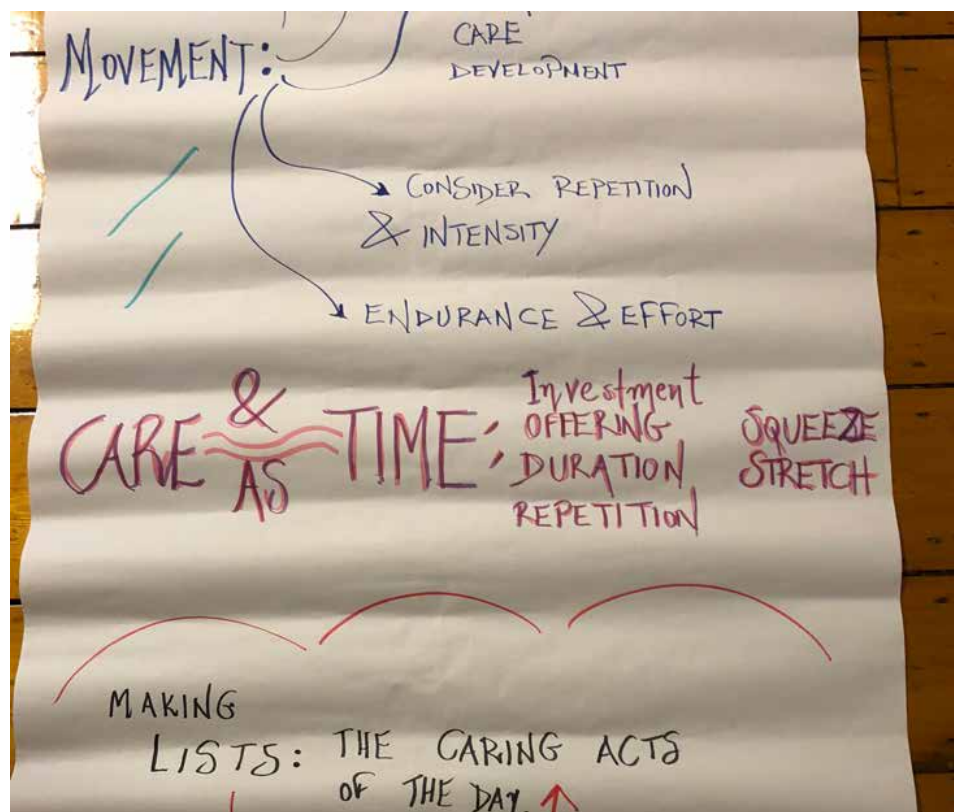 MOVEMENT:
CARE
DEVELOPMENT
CONSIDER REPETITION
& INTENSITY
ENDURANCE & EFFORT
CARE & AS TIME:
Investment
OFFERING
DURATION
REPETITION
SQUEEZE
STRETCH
MAKING
LISTS: THE CARING ACTS
OF THE DAY